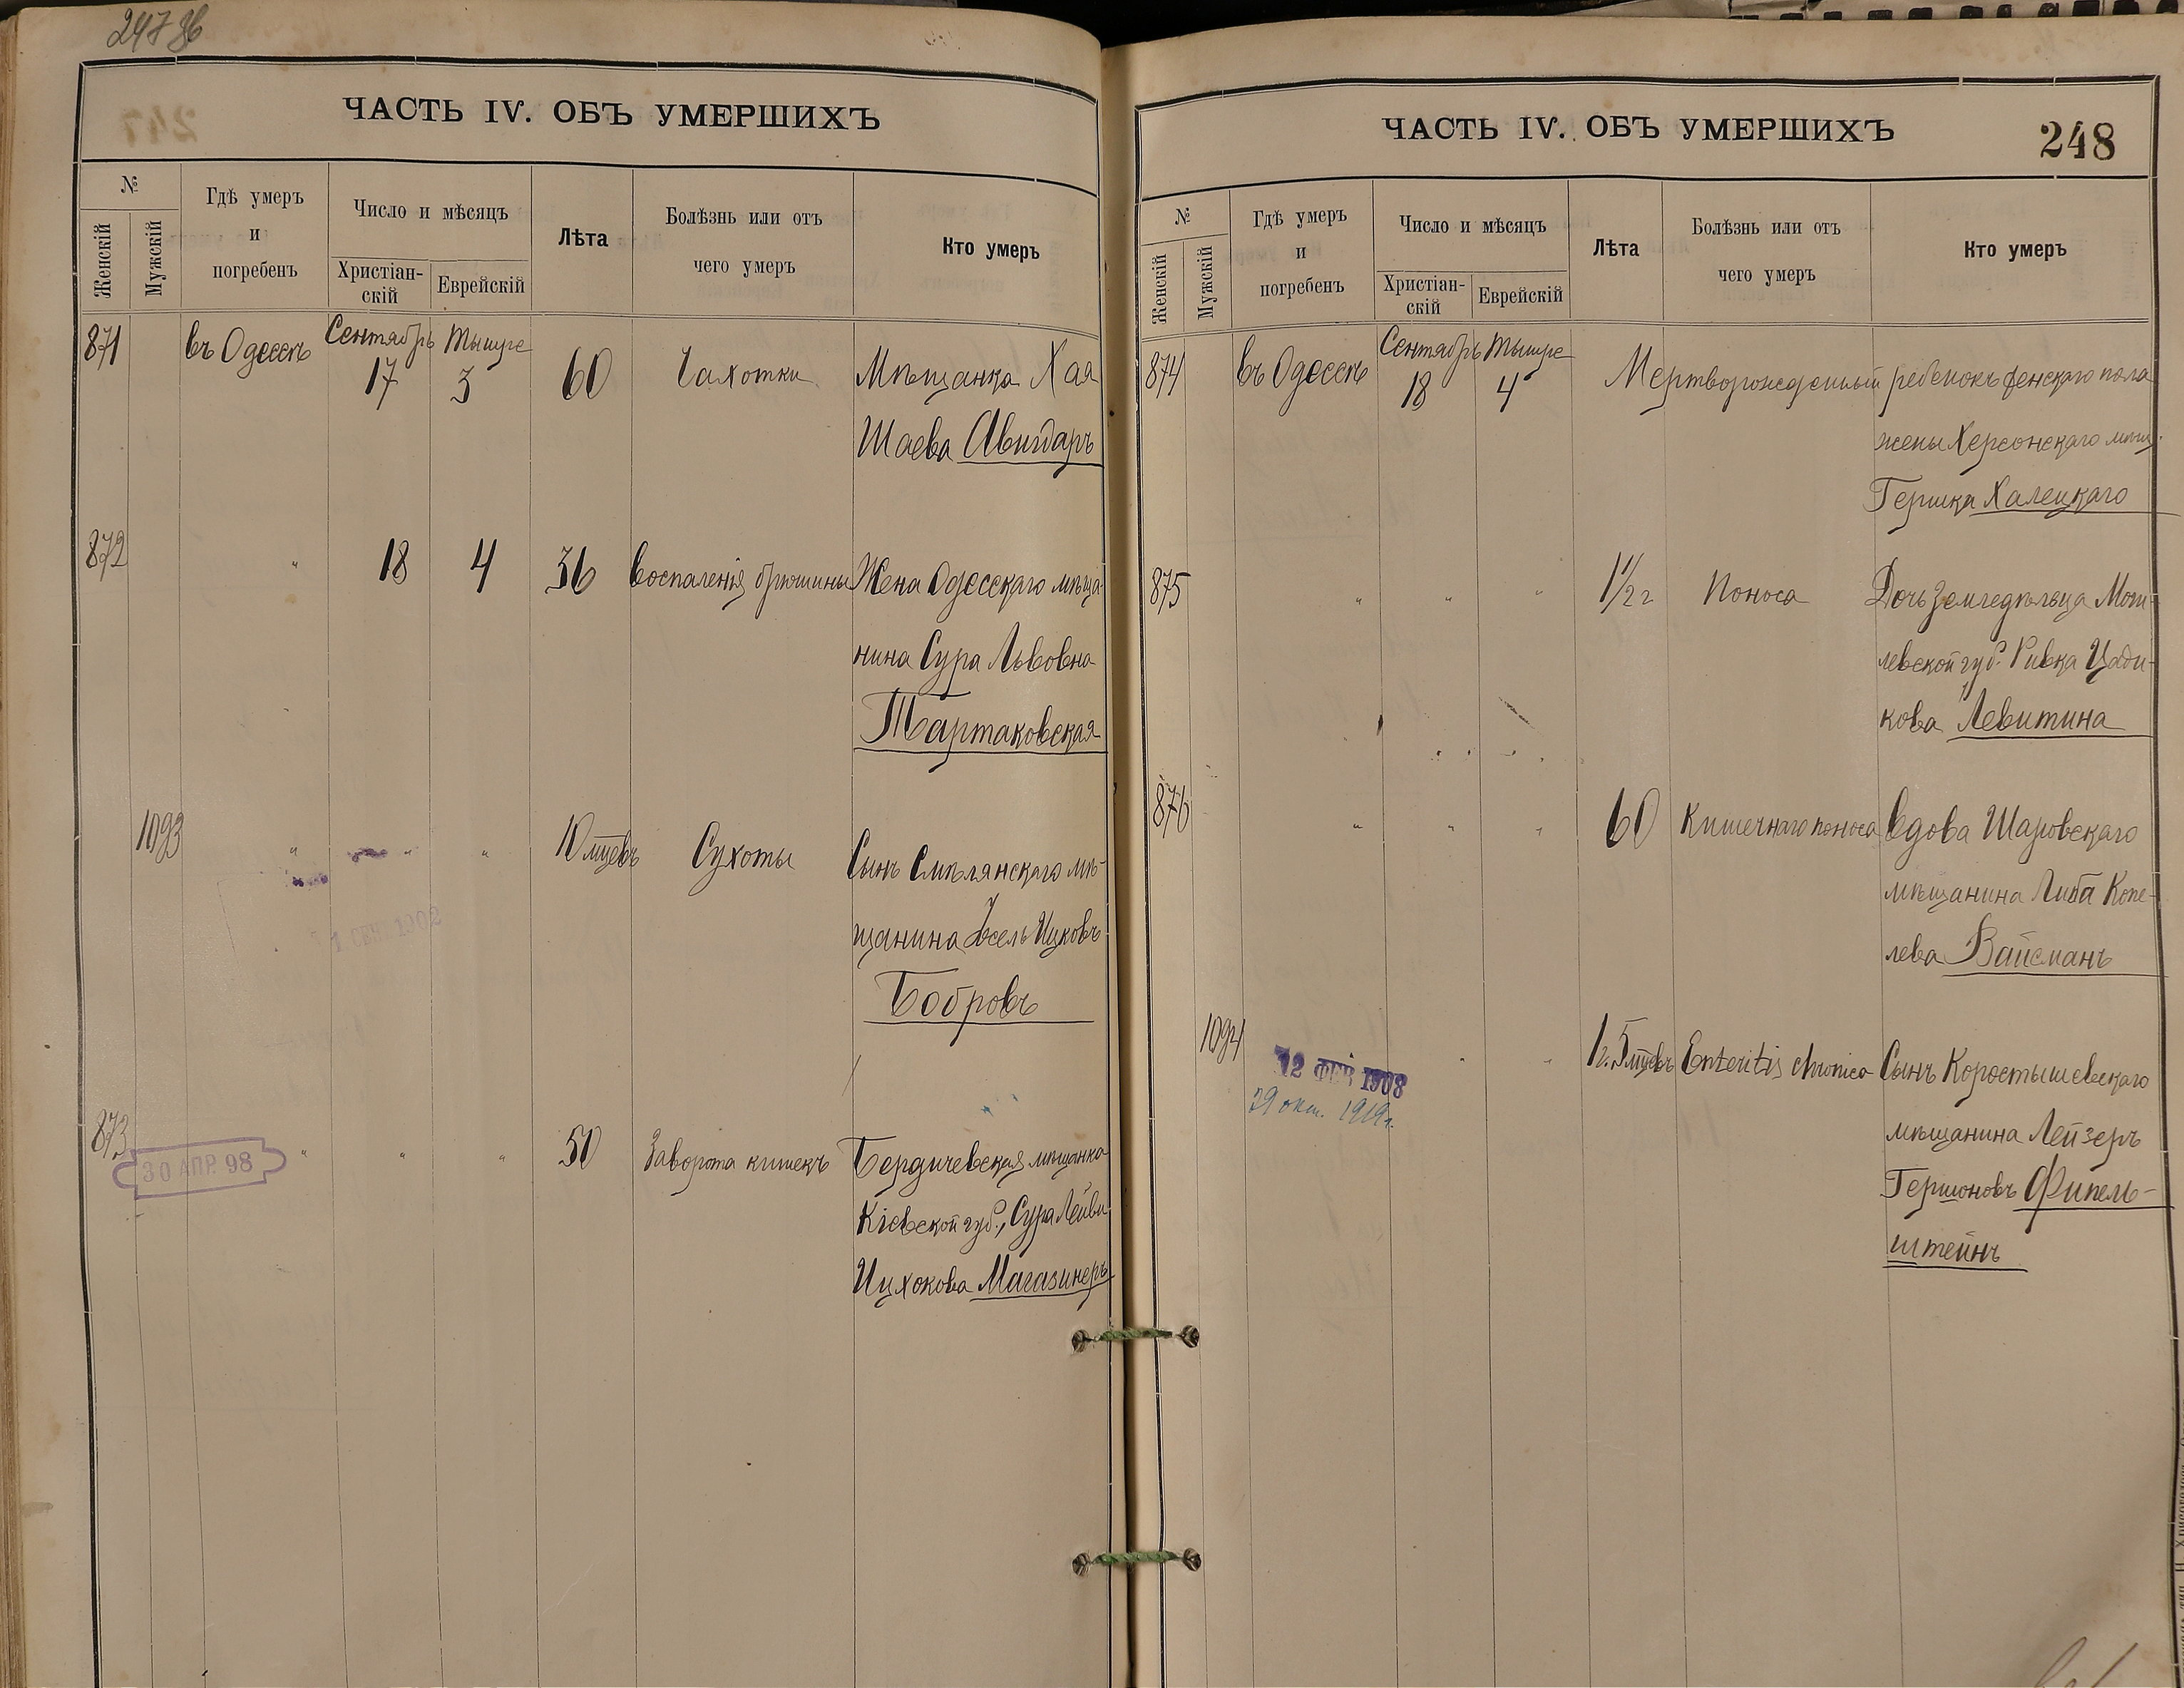 247 об
ЧАСТЬ IV. ОБЪ УМЕРШИХЪ
№
Женскій
Мужскій
Гдѣ умеръ
и
погребенъ
Число и мѣсяцъ
Христіан-
скій
Еврейскій
Лѣта
Болѣзнь или отъ
чего умеръ
Кто умеръ
871 въ Одессѣ Сентябрь 17 Тышре 3 60 Чахотки Мѣщанка Хая
Шаева Авигдаръ
872 " 18 4 36 Воспаленія брюшины Жена Одесскаго мѣща-
нина Сура Львовна
Тартаковская
1093 " " " 10 мцевъ Сухоты Сынъ Смѣлянскаго мѣ-
щанина Іосель Ицковъ
Бобровъ
1 СЕН 1902
873 " " " 50 Заворота кишекъ Бердичевская мѣщанка
30 АПР. 98
Кіевской губ., Сура Лейви
Ицхокова Магазинеръ
ЧАСТЬ IV. ОБЪ УМЕРШИХЪ
248
№
Женскій
Мужскій
Гдѣ умеръ
и
погребенъ
Число и мѣсяцъ
Христіан-
скій
Еврейскій
Лѣта
Болѣзнь или отъ
чего умеръ
Кто умеръ
874 въ Одессѣ Сентябрь 18 Тышре 4 Мертворожденный ребенокъ женскаго пола
жены Херсонскаго мѣщ.
Гершка Халецкаго
875 " " " 1 1/2 г Поноса Дочь земледѣльца Моги-
левской губ. Ривка Цади-
кова Левитина
876 " " " 60 Кишечнаго поноса Вдова Шаровскаго
мѣщанина Либа Копе-
лева Вайсманъ
1094 " " 1 г. 5 мцевъ Enteritis chronica Сынъ Коростышевскаго
12 ФЕВ 1908
29 окт. 1919 г.
мѣщанина Лейзеръ
Гершоновъ Фипель-
штейнъ